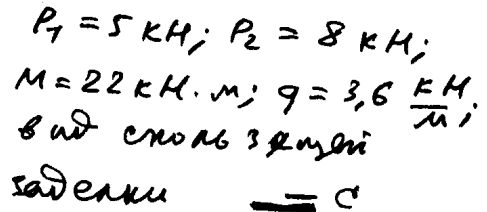 P₁ = 5 кН; P₂ = 8 кН;
М = 22 кН·м; q = 3,6 кН/м;
вид скользящей
заделки = С